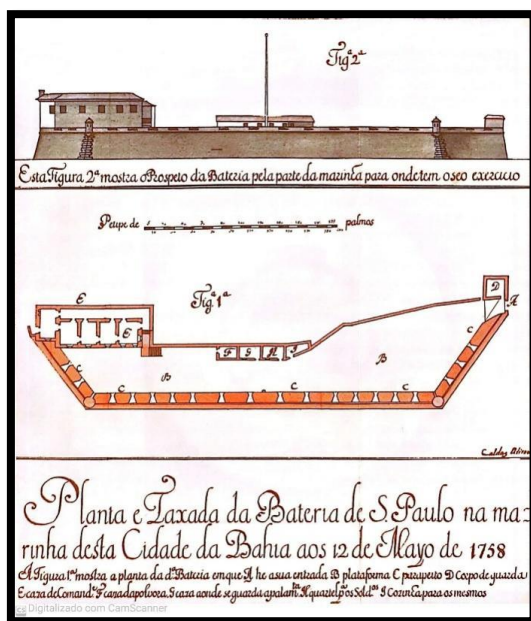 Fig.ª 2ª
Esta Figura 2ª mostra o Prospeto da Bateria pela parte da marinha para onde tem o seo exercicio
Petipe de palmos
Fig.ª 1ª
E
D
A
E
C
F G H I
C
B
B
C
C
C
C
Caldas
Planta e Faxada da Bateria de S. Paulo na ma=
rinha desta Cidade da Bahia aos 12 de Mayo de 1758
A Figura 1ª mostra a planta da dª Bateria em que A he a sua entrada B plataforma C parapeito D Corpo de guarda
E caza de Comandᵉ F caza da polvora, G caza aonde se guarda a palamᵗᵃ H quartel pª os Soldᵒˢ I Cozinha para os mesmos
CS Digitalizado com CamScanner